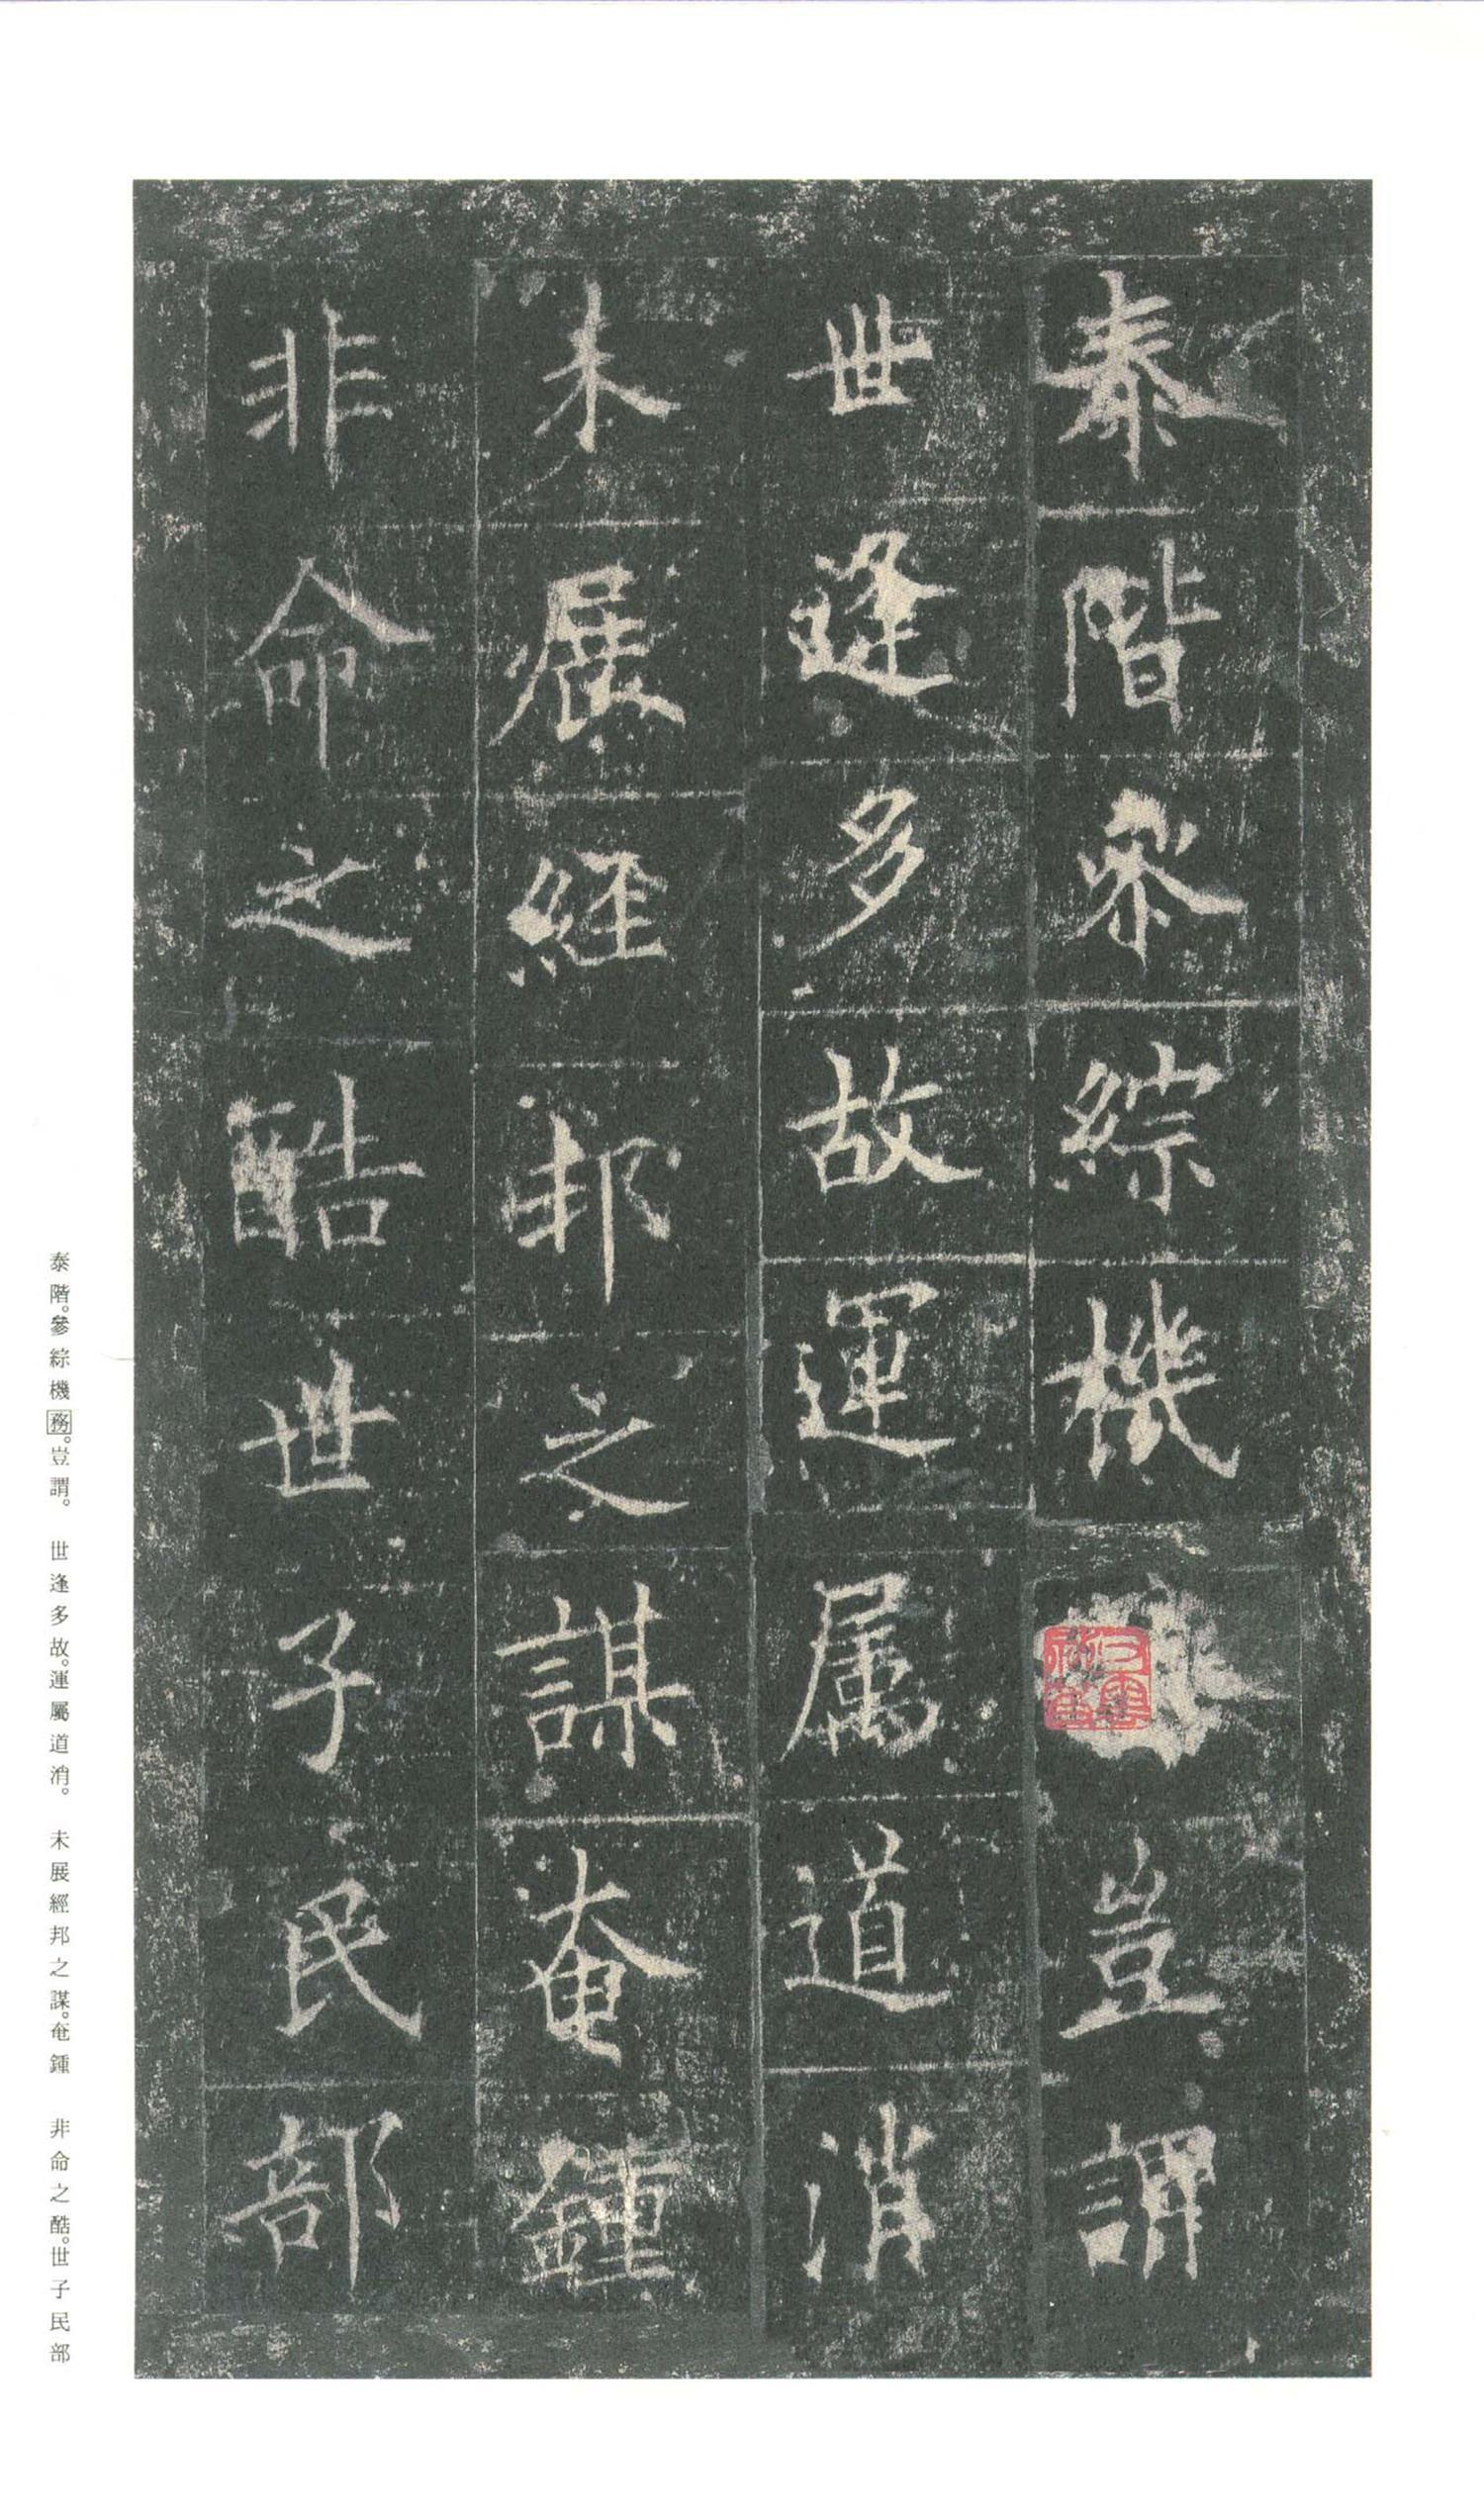 泰階叅綜機豈謂
世逢多故運属道消
未展經邦之謀奄鍾
非命之酷世子民部
泰階。參綜機務。豈謂。 世逢多故。運屬道消。 未展經邦之謀。奄鍾 非命之酷。世子民部